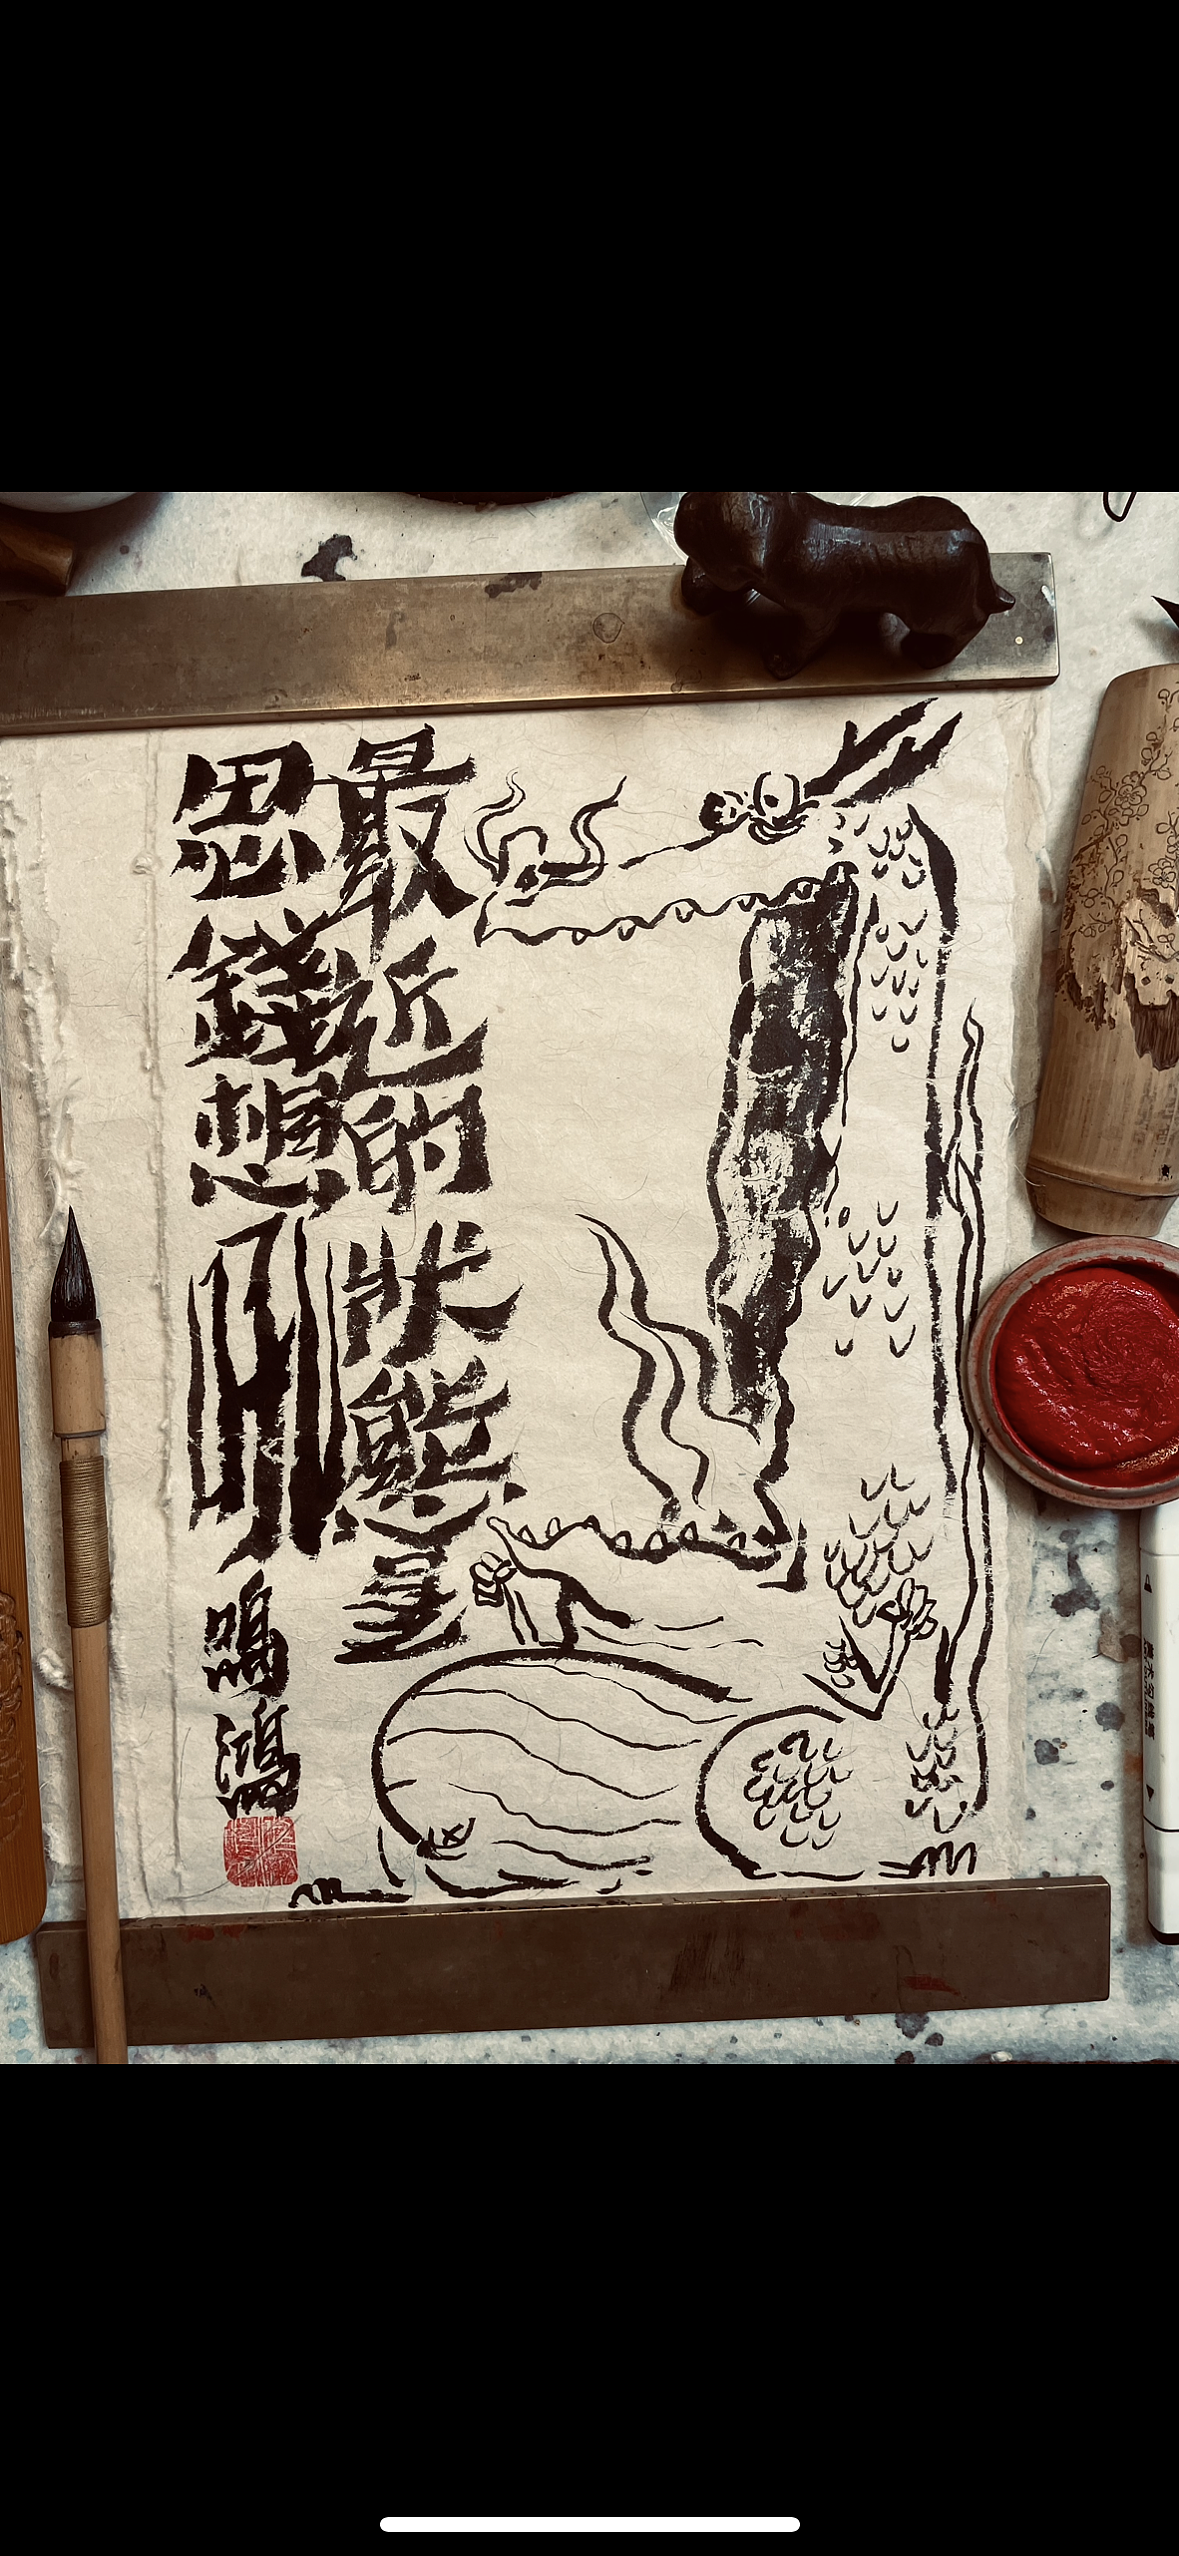 最近的狀態是
思錢想
鳴鴻